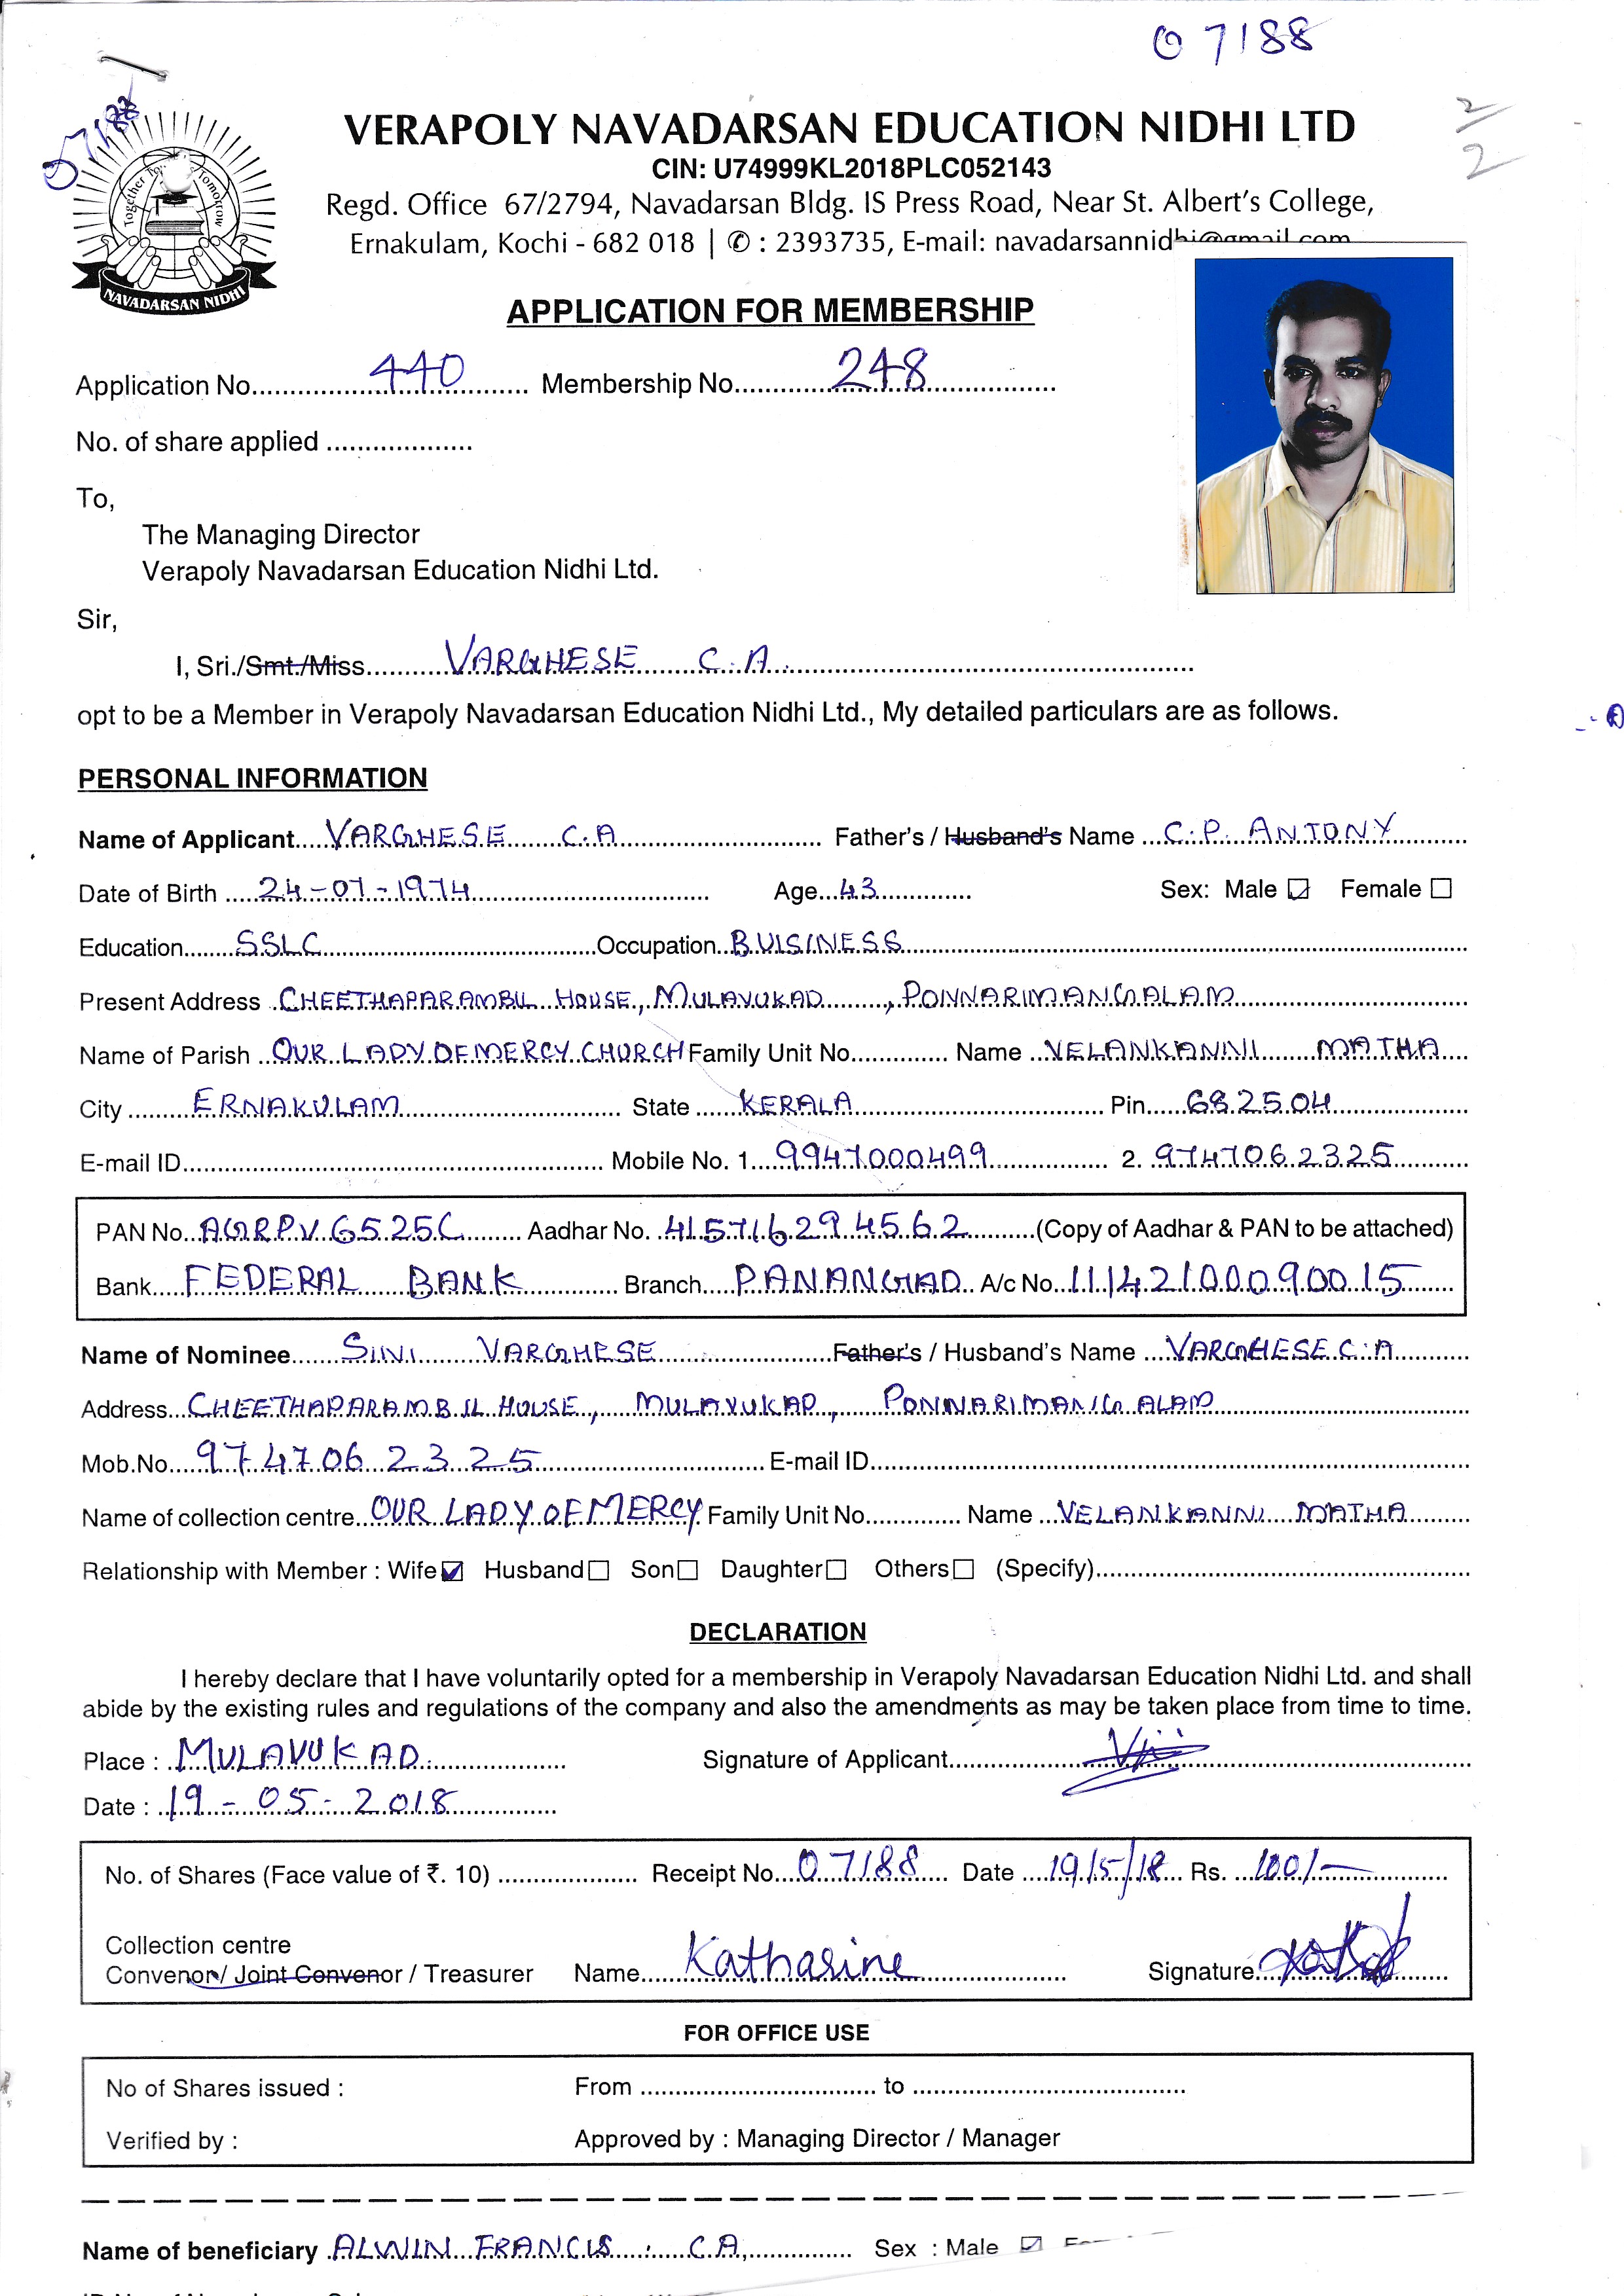 07188
07188
2/2
Together For Tomorrow
NAVADARSAN NIDHI
VERAPOLY NAVADARSAN EDUCATION NIDHI LTD
CIN: U74999KL2018PLC052143
Regd. Office 67/2794, Navadarsan Bldg. IS Press Road, Near St. Albert's College,
Ernakulam, Kochi - 682 018 | ✆ : 2393735, E-mail: navadarsannidhi@gmail.com
APPLICATION FOR MEMBERSHIP
Application No. 440 Membership No. 248
No. of share applied
To,
The Managing Director
Verapoly Navadarsan Education Nidhi Ltd.
Sir,
I, Sri./Smt./Miss VARGHESE C.A.
opt to be a Member in Verapoly Navadarsan Education Nidhi Ltd., My detailed particulars are as follows.
PERSONAL INFORMATION
Name of Applicant VARGHESE C.A Father's / Husband's Name C.P. ANTONY
Date of Birth 24-07-1974 Age 43 Sex: Male ☑ Female ☐
Education SSLC Occupation BUISINESS
Present Address CHEETHAPARAMBIL HOUSE, MULAVUKAD, PONNARIMANGALAM
Name of Parish OUR LADY OF MERCY CHURCH Family Unit No. Name VELANKANNI MATHA
City ERNAKULAM State KERALA Pin 682504
E-mail ID Mobile No. 1. 9947000499 2. 9747062325
PAN No. AGRPV6525C Aadhar No. 415716294562 (Copy of Aadhar & PAN to be attached)
Bank FEDERAL BANK Branch PANANGAD A/c No. 11142100090015
Name of Nominee SINI VARGHESE Father's / Husband's Name VARGHESE C.A
Address CHEETHAPARAMBIL HOUSE, MULAVUKAD, PONNARIMANGALAM
Mob.No. 9747062325 E-mail ID
Name of collection centre OUR LADY OF MERCY Family Unit No. Name VELANKANNI MATHA
Relationship with Member : Wife ☑ Husband ☐ Son ☐ Daughter ☐ Others ☐ (Specify)
DECLARATION
I hereby declare that I have voluntarily opted for a membership in Verapoly Navadarsan Education Nidhi Ltd. and shall
abide by the existing rules and regulations of the company and also the amendments as may be taken place from time to time.
Place : MULAVUKAD Signature of Applicant
Date : 19-05-2018
No. of Shares (Face value of ₹. 10) Receipt No. 07188 Date 19/5/18 Rs. 100/-
Collection centre
Convenor/ Joint Convenor / Treasurer Name Katharine Signature
FOR OFFICE USE
No of Shares issued : From to
Verified by : Approved by : Managing Director / Manager
Name of beneficiary ALWIN FRANCIS. C.A, Sex : Male ☑